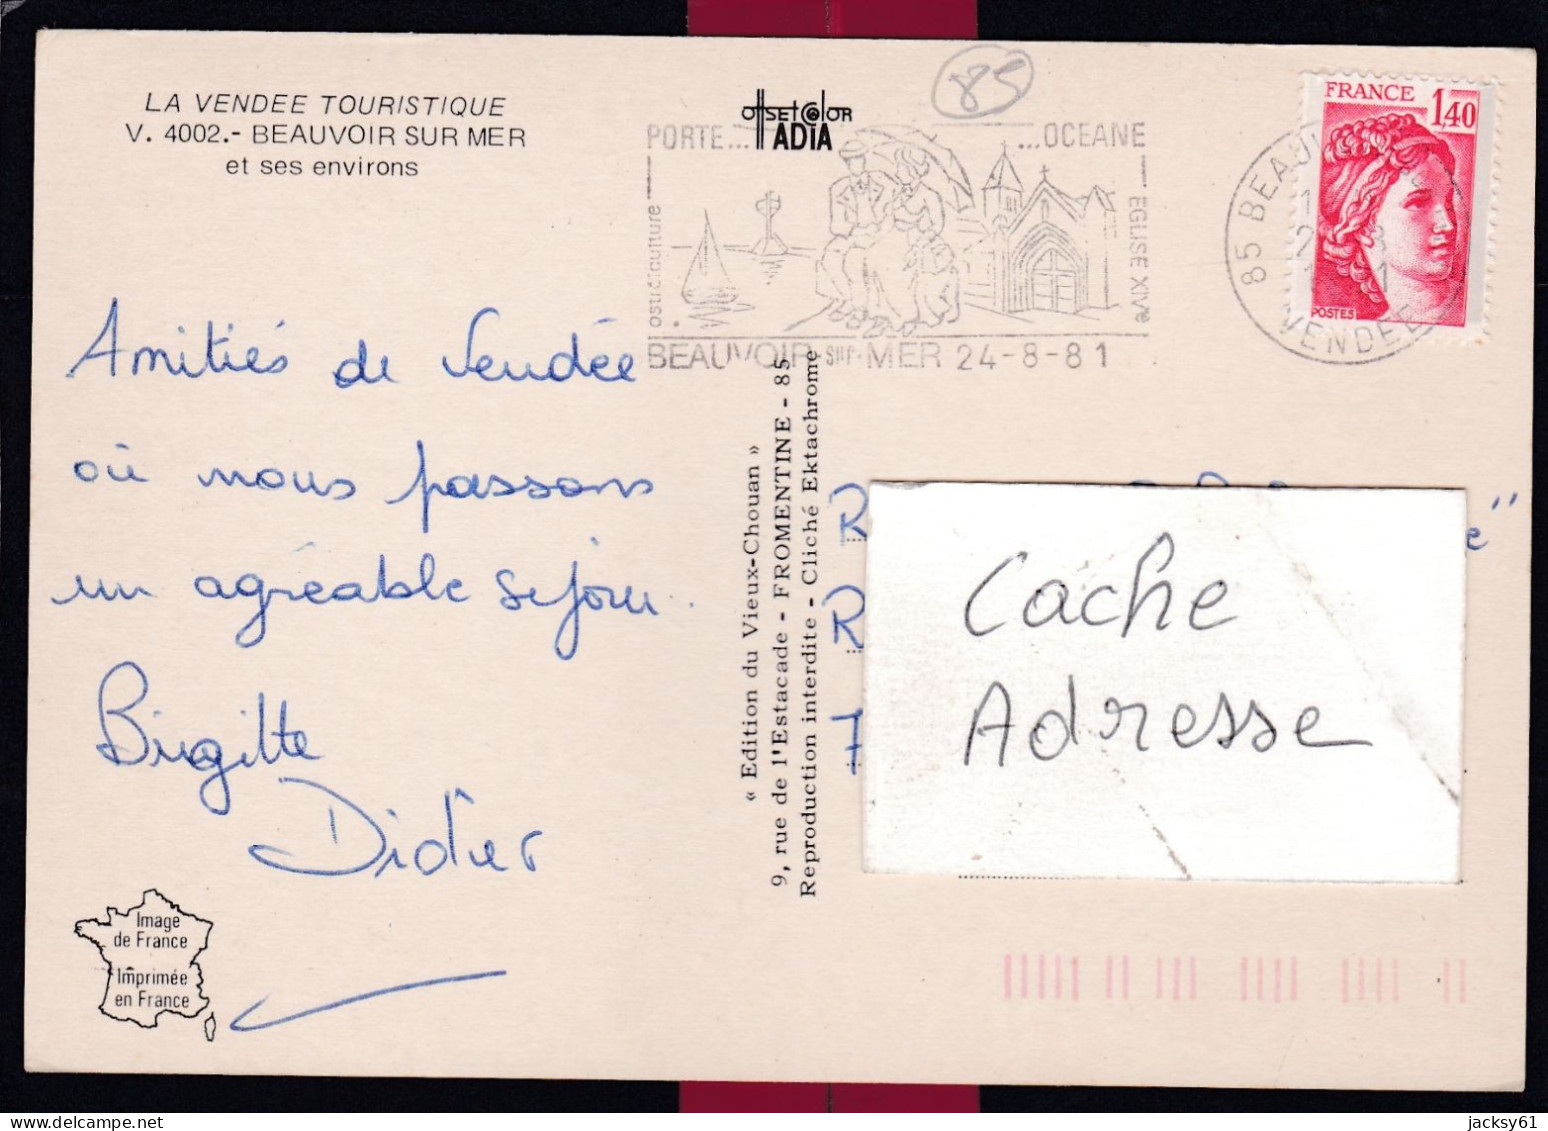 LA VENDEE TOURISTIQUE
V. 4002.- BEAUVOIR SUR MER
et ses environs
offset color
ADIA
85
PORTE... ...OCEANE
ostréiculture
EGLISE XIVe
BEAUVOIR sur MER 24-8-81
85 BEAUV
VENDEE
FRANCE
1,40
POSTES
Amitiés de Vendée
où nous passons
un agréable séjour.
Brigitte
Didier
« Edition du Vieux-Chouan »
9, rue de l'Estacade - FROMENTINE - 85
Reproduction interdite - Cliché Ektachrome
R
e"
R
7
Cache
Adresse
Image
de France
Imprimée
en France
jacksy61